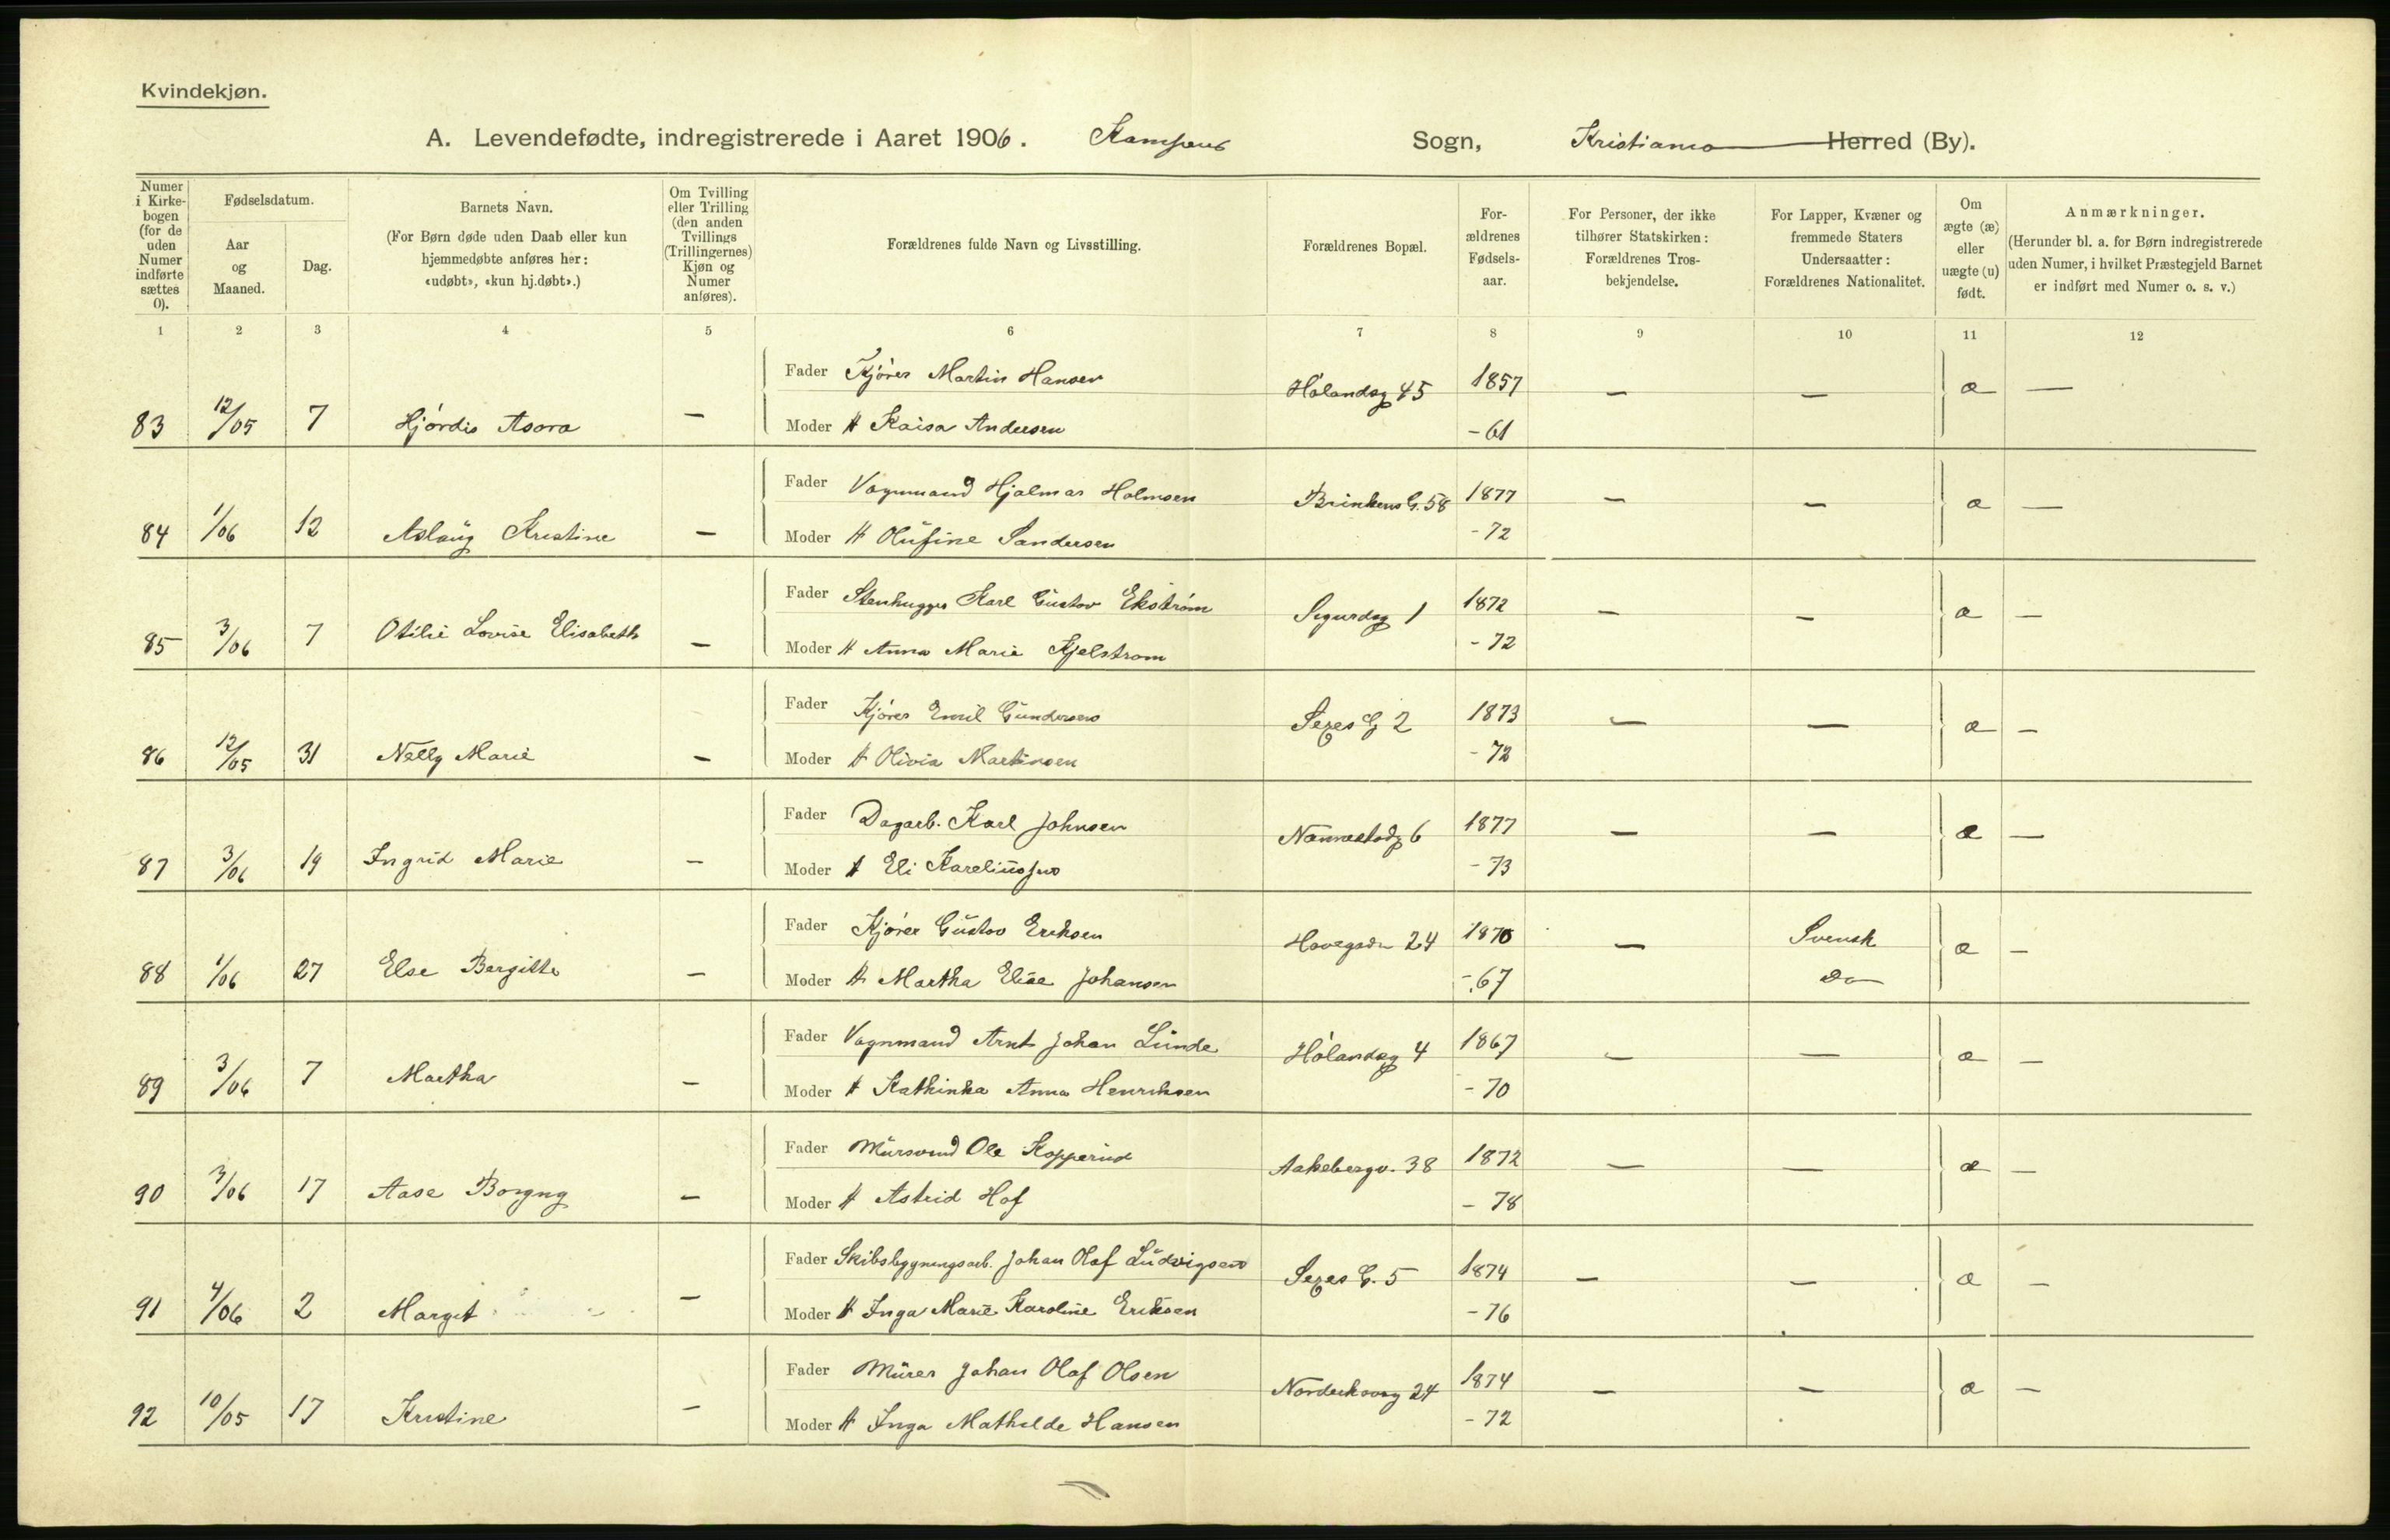 Kvindekjøn.
A. Levendefødte, indregistrerede i Aaret 1906. Kampens Sogn, Kristiania Herred (By).
Numer i Kirkebogen (for de uden Numer indførte sættes 0).
Fødselsdatum.
Aar og Maaned.
Dag.
Barnets Navn.
(For Børn døde uden Daab eller kun hjemmedøbte anføres her: «udøbt», «kun hj.døbt».)
Om Tvilling eller Trilling (den anden Tvillings (Trillingernes) Kjøn og Numer anføres).
Forældrenes fulde Navn og Livsstilling.
Forældrenes Bopæl.
Forældrenes Fødselsaar.
For Personer, der ikke tilhører Statskirken: Forældrenes Trosbekjendelse.
For Lapper, Kvæner og fremmede Staters Undersaatter: Forældrenes Nationalitet.
Om ægte (æ) eller uægte (u) født.
Anmærkninger.
(Herunder bl. a. for Børn indregistrerede uden Numer, i hvilket Præstegjeld Barnet er indført med Numer o. s. v.)
1 2 3 4 5 6 7 8 9 10 11 12
Fader Kjører Martin Hansen Hølandsg 45 1857 — — æ —
83 12/05 7 Hjørdis Asora — Moder H Kaisa Andersen - 61
Fader Vognmand Hjalmar Holmsen Brinkens G. 58 1877 — — æ —
84 1/06 12 Aslaug Kristine — Moder H Olufine Sandersen - 72
Fader Stenhugger Karl Gustav Ekstrøm Sigurdsg 1 1872 — — æ —
85 3/06 7 Otilie Lovise Elisabeth — Moder H Anna Marie Kjelstrom - 72
Fader Kjører Emil Gundersen Sexes G 2 1873 — — æ —
86 12/05 31 Nelly Marie — Moder H Olivia Martinsen - 72
Fader Dagarb. Karl Johnsen Nannestadg 6 1877 — — æ —
87 3/06 19 Ingrid Marie — Moder H Eli Kareliussen - 73
Fader Kjører Gustav Eriksen Hovegaden 24 1870 — Svensk æ —
88 1/06 27 Else Bergitte — Moder H Martha Elise Johansen - 67 Do
Fader Vognmand Arnt Johan Lunde Hølandsg 4 1867 — — æ —
89 3/06 7 Martha — Moder H Kathinka Anna Henriksen - 70
Fader Mursvend Ole Kopperud Aakebergv. 38 1872 — — æ —
90 3/06 17 Aase Borgny — Moder H Astrid Hof - 78
Fader Skibsbygningsarb. Johan Olaf Ludvigsen Sexes G. 5 1874 — — æ —
91 4/06 2 Margit — Moder H Inga Marie Karoline Eriksen - 76
Fader Murer Johan Olaf Olsen 24 1874 — — æ —
92 10/05 17 Kristine — Moder H Inga Mathilde Hansen - 72